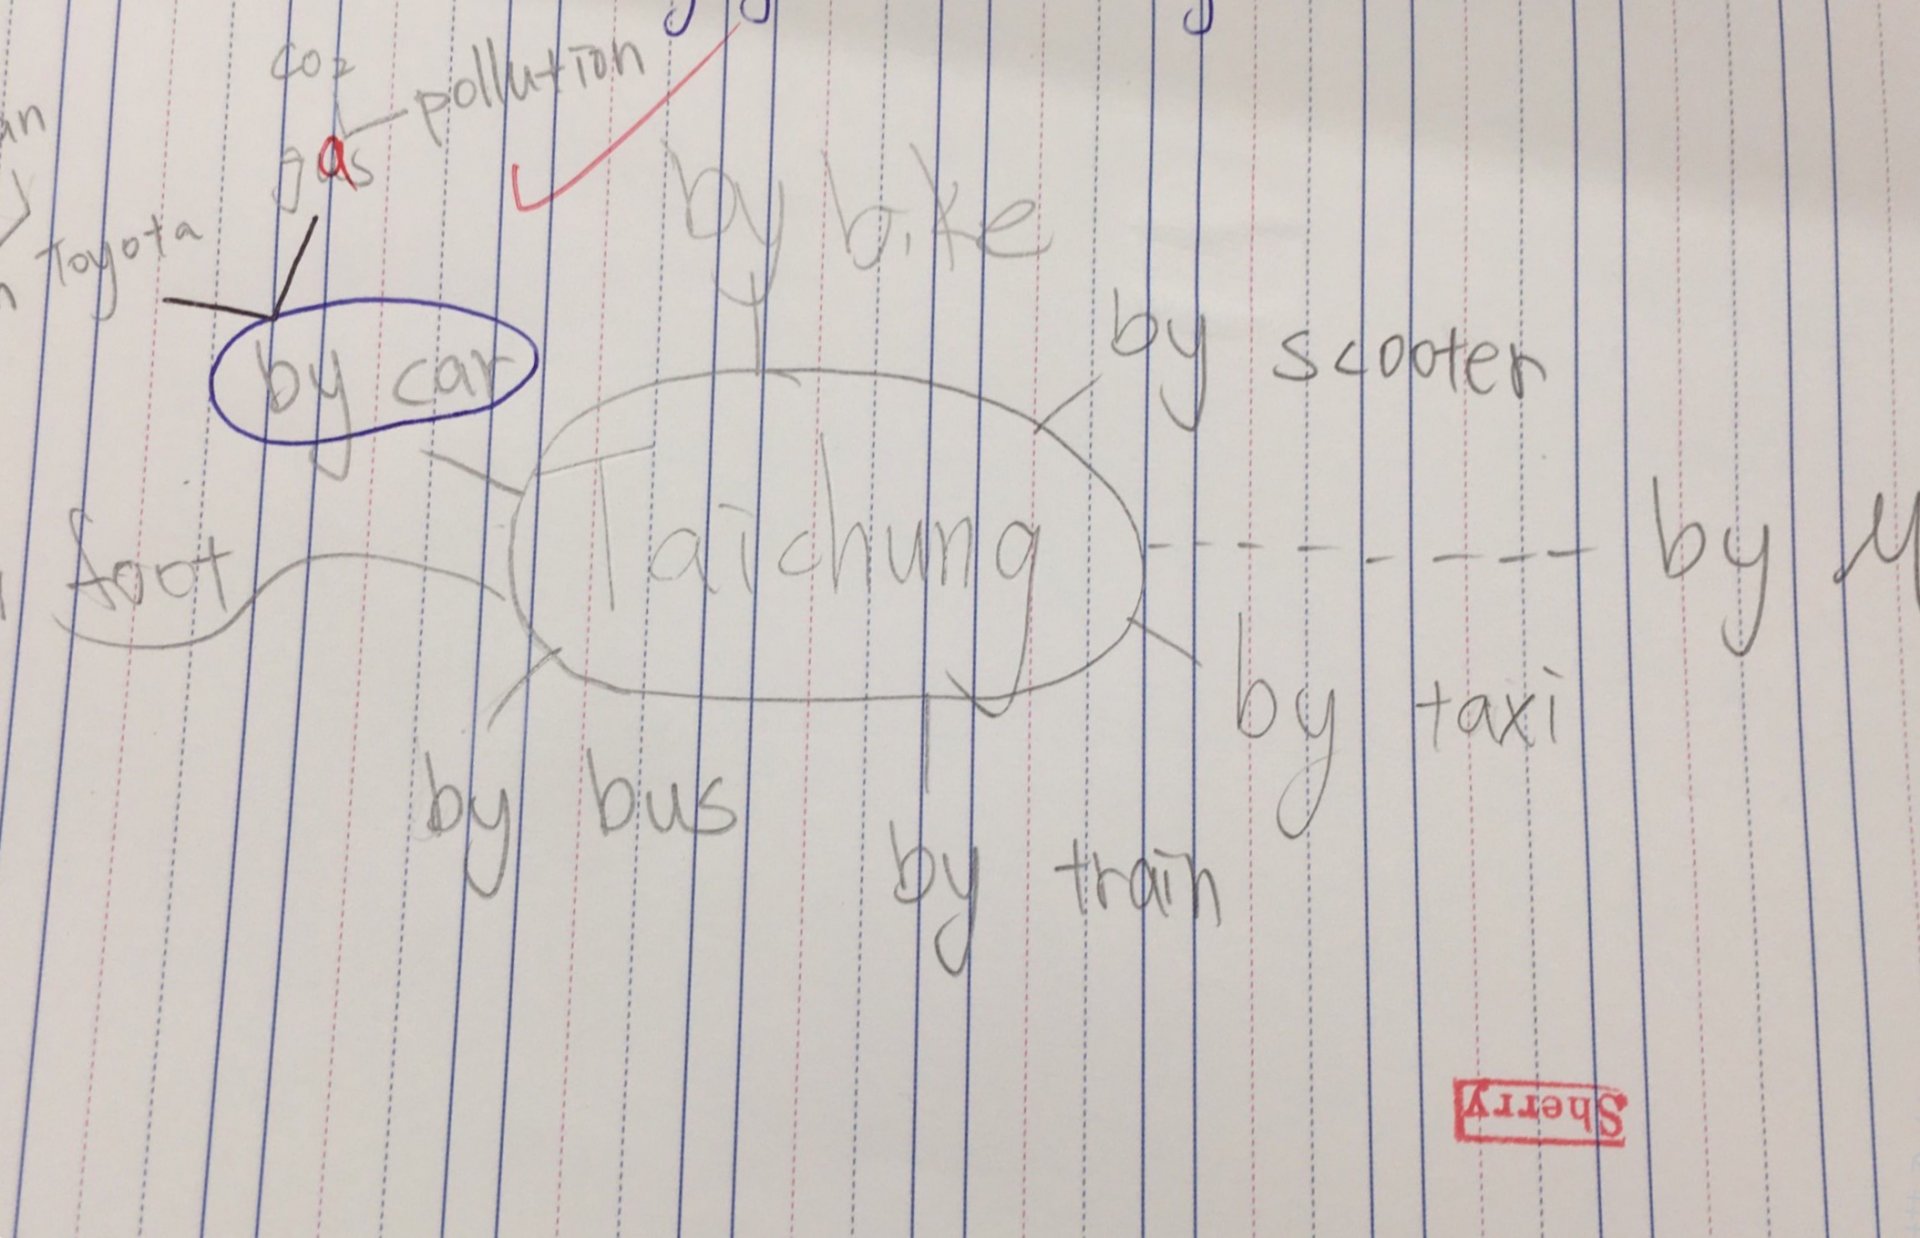 CO2
pollution
gas
Toyota
by bike
by car
by scooter
Taichung
foot
by
by taxi
by bus
by train
Sherry